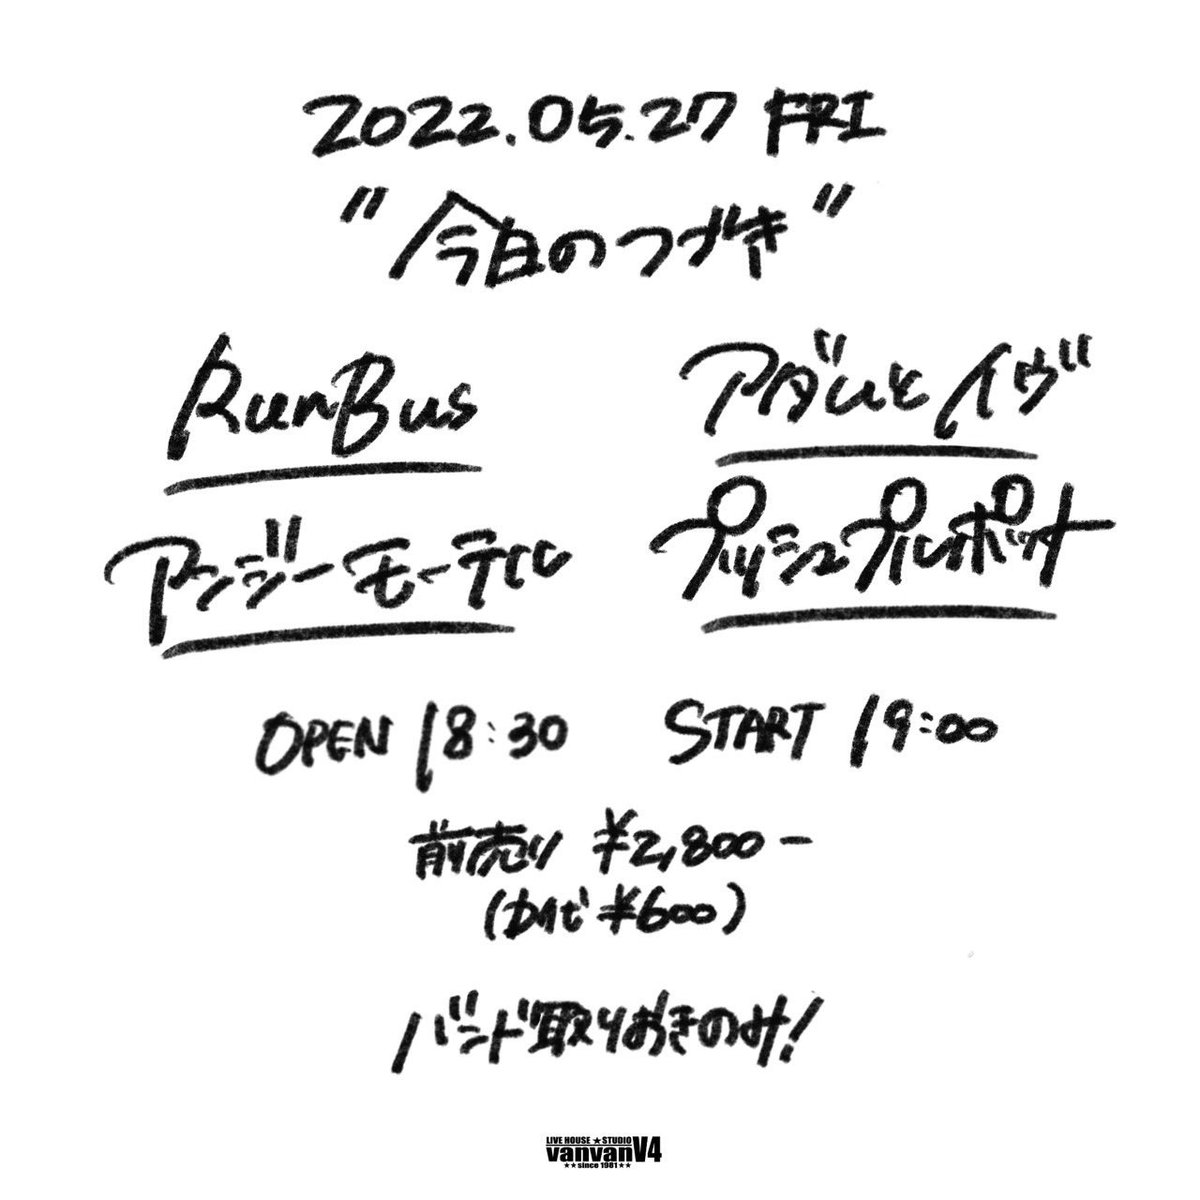 2022.05.27 FRI
"今日のつづき"
RunBus
アダムとイヴ
アンジーモーテル
プッシュプルポット
OPEN 18:30
START 19:00
前売り ¥2,800-
(別で ¥600)
バンド取りおきのみ!
LIVE HOUSE ★ STUDIO
vanvanV4
★★since 1981★★